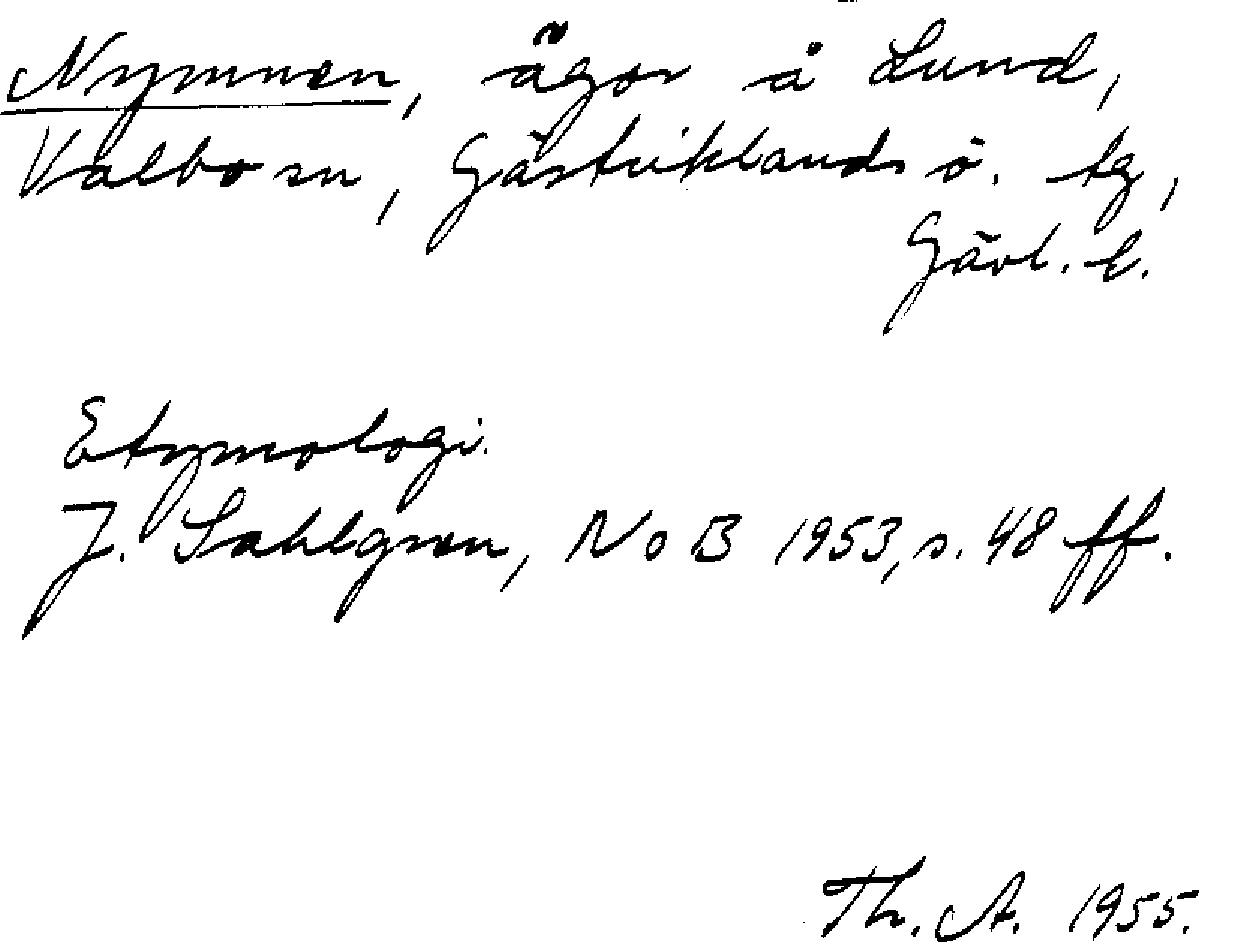 Nymnen, ägor å Lund,
Valbo sn, Gästriklands ö. tg,
Gävl. l.
Etymologi.
J. Sahlgren, NoB 1953, s. 48 ff.
Th. A. 1955.